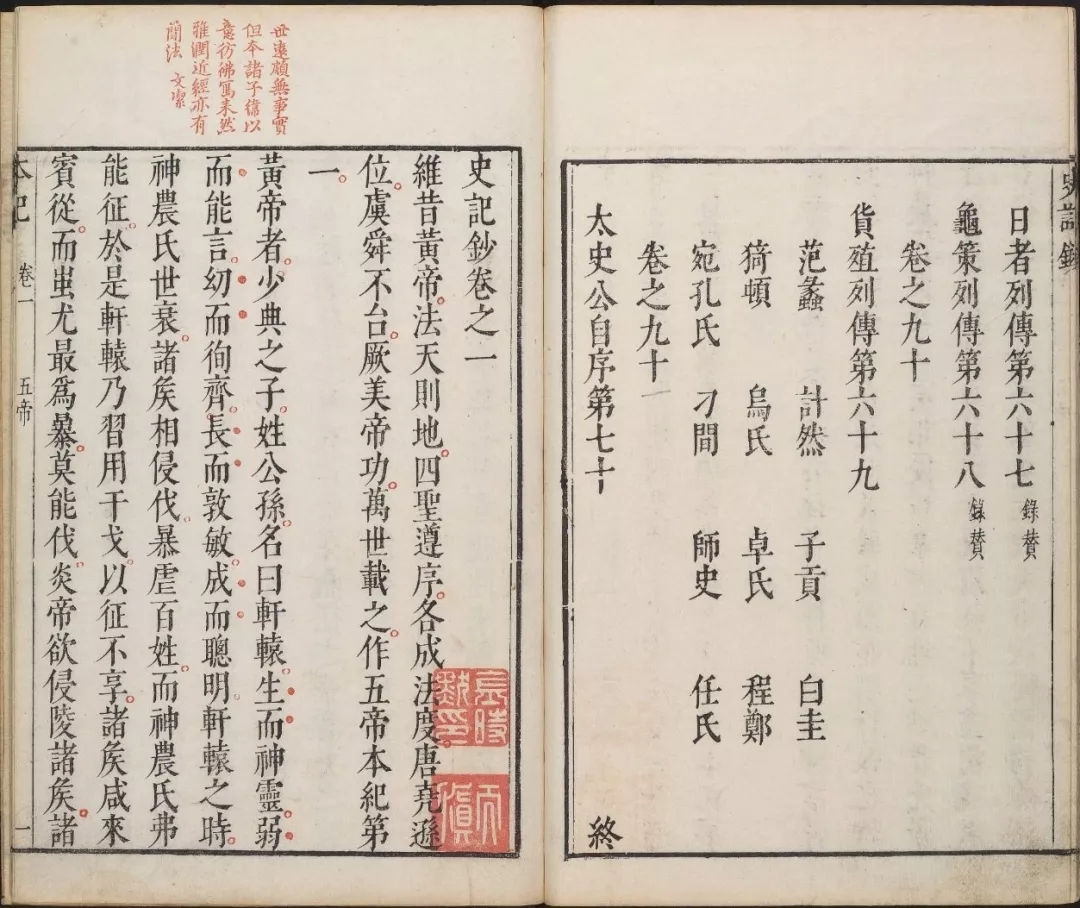 日者列傳第六十七 錄贊
龜策列傳第六十八 錄贊
卷之九十
貨殖列傳第六十九
范蠡 計然 子貢 白圭
猗頓 烏氏 卓氏 程鄭
宛孔氏 刁間 師史 任氏
卷之九十一
太史公自序第七十
終
世遠頗無事實
但本諸子緯以
意彷彿寫來然
雅潤近經亦有
簡法 文潔
史記鈔卷之一
維昔黃帝法天則地四聖遵序各成法度唐堯遜
位虞舜不台厥美帝功萬世載之作五帝本紀第
一
黃帝者少典之子姓公孫名曰軒轅生而神靈弱
而能言幼而徇齊長而敦敏成而聰明軒轅之時
神農氏世衰諸矦相侵伐暴虐百姓而神農氏弗
能征於是軒轅乃習用干戈以征不享諸矦咸來
賓從而蚩尤最爲暴莫能伐炎帝欲侵陵諸矦諸
本紀 卷一 五帝 一